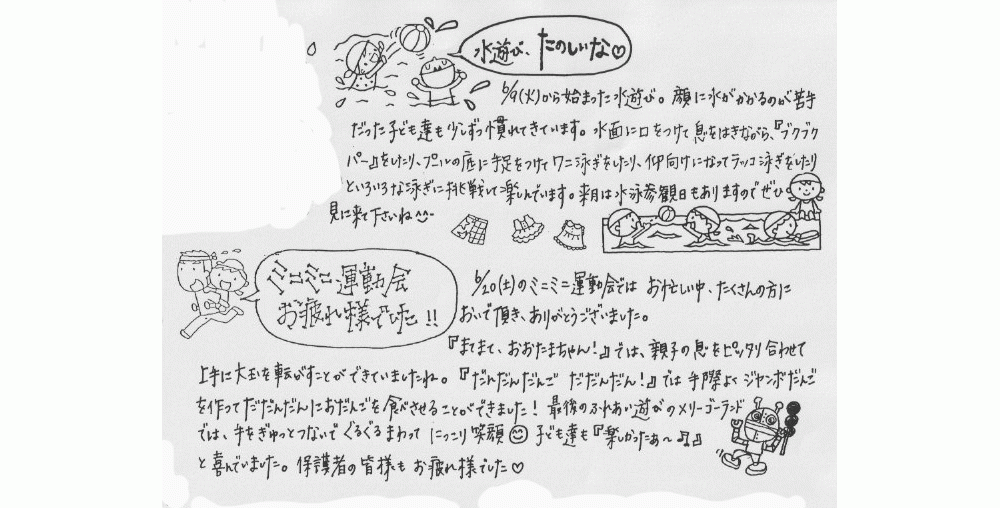 水遊び、たのしいな♡
6/9(火)から始まった水遊び。顔に水がかかるのが苦手
だった子ども達も少しずつ慣れてきています。水面に口をつけて息をはきながら、『ブクブク
パー』をしたり、プールの底に手足をつけてワニ泳ぎをしたり、仰向けになってラッコ泳ぎをしたり
といろいろな泳ぎに挑戦して楽しんでいます。来月は水泳参観日もありますのでぜひ
見に来て下さいね
ミニミニ運動会
お疲れ様でした!!
6/20(土)のミニミニ運動会では お忙しい中、たくさんの方に
おいで頂き、ありがとうございました。
『まてまて、おおたまちゃん!』では、親子の息をピッタリ合わせて
上手に大玉を転がすことができていましたね。『だんだんだんご だだんだん!』では手際よくジャンボだんご
を作ってだだんだんにおだんごを食べさせることができました!最後のふれあい遊びのメリーゴーランド
では、手をぎゅっとつないでぐるぐるまわって にっこり笑顔 子ども達も『楽しかったぁ~♫』
と喜んでいました。保護者の皆様もお疲れ様でした♡